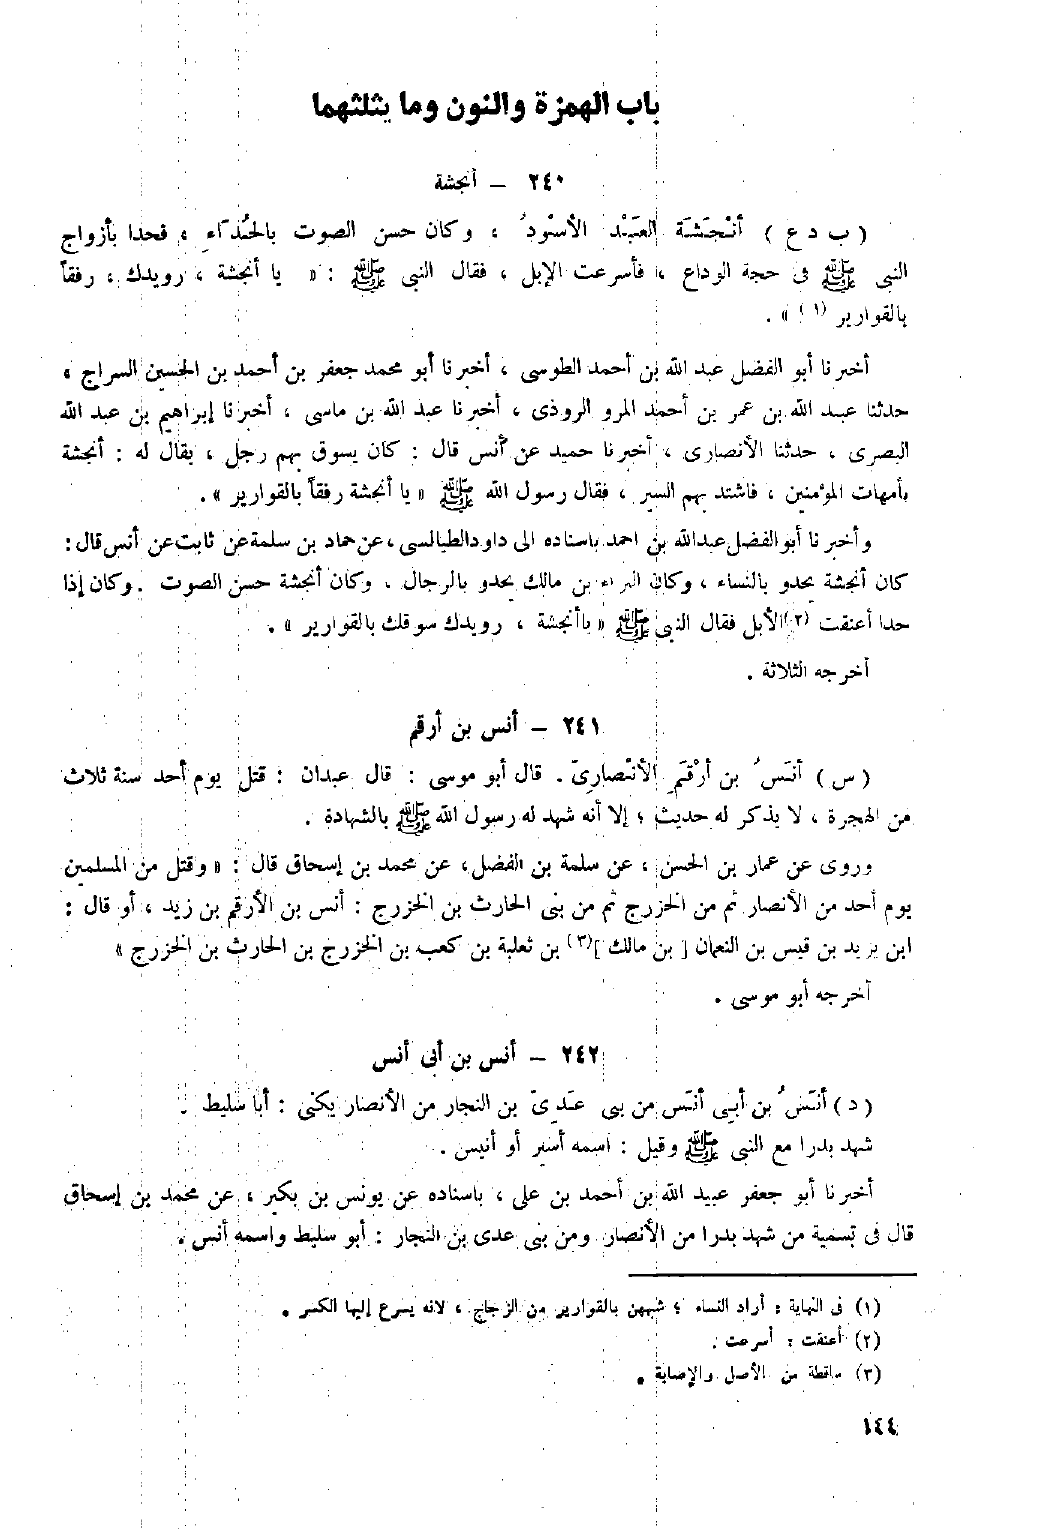 باب الهمزة والنون وما يثلثهما
٢٤٠ – أنجشة
( ب د ع ) أَنْجَشَة العَبْد الأسْودُ ، وكان حسن الصوت بالحُدَاءِ ، فحدا بأزواج
النبى ﷺ فى حجة الوداع ، فأسرعت الإبل ، فقال النبى ﷺ : « يا أنجشة ، رويدك ، رفقاً
بالقوارير (١) » .
أخبرنا أبو الفضل عبد الله بن أحمد الطوسى ، أخبرنا أبو محمد جعفر بن أحمد بن الحسين السراج ،
حدثنا عبد الله بن عمر بن أحمد المرو الروذى ، أخبرنا عبد الله بن ماسى ، أخبرنا إبراهيم بن عبد الله
البصرى ، حدثنا الأنصارى ، أخبرنا حميد عن أنس قال : كان يسوق بهم رجل ، يقال له : أنجشة
بأمهات المؤمنين ، فاشتد بهم السير ، فقال رسول الله ﷺ « يا أنجشة رفقاً بالقوارير » .
وأخبرنا أبوالفضل عبدالله بن احمد باسناده الى داودالطيالسى ، عن حماد بن سلمة عن ثابت عن أنس قال :
كان أنجشة يحدو بالنساء ، وكان البراء بن مالك يحدو بالرجال . وكان أنجشة حسن الصوت . وكان إذا
حدا أعنقت (٢) الأبل فقال النبى ﷺ « ياأنجشة ، رويدك سوقك بالقوارير » .
أخرجه الثلاثة .
٢٤١ – أنس بن أرقم
( س ) أنَسُ بن أرْقَمِ الأنْصارِىّ . قال أبو موسى : قال عبدان : قتل يوم أحد سنة ثلاث
من الهجرة ، لا يذكر له حديث ؛ إلا أنه شهد له رسول الله ﷺ بالشهادة .
وروى عن عمار بن الحسن ، عن سلمة بن الفضل، عن محمد بن إسحاق قال : « وقتل من المسلمين
يوم أحد من الأنصار ثم من الخزرج ثم من بنى الحارث بن الخزرج : أنس بن الأرقم بن زيد ، أو قال :
ابن يزيد بن قيس بن النعمان [ بن مالك ](٣) بن ثعلبة بن كعب بن الخزرج بن الحارث بن الخزرج »
أخرجه أبو موسى .
٢٤٢ – أنس بن أبى أنس
( د ) أنَسُ بن أبِى أنَس من بنى عَدِىّ بن النجار من الأنصار يكنى : أبا سليط .
شهد بدرا مع النبى ﷺ وقيل : اسمه أسير أو أنيس .
أخبرنا أبو جعفر عبيد الله بن أحمد بن على ، باسناده عن يونس بن بكير ، عن محمد بن إسحاق
قال فى تسمية من شهد بدرا من الأنصار ومن بنى عدى بن النجار : أبو سليط واسمه أنس .
(١) فى النهاية : أراد النساء ؛ شبههن بالقوارير من الزجاج ، لانه يسرع إليها الكسر .
(٢) أعنقت : أسرعت .
(٣) ساقطة من الأصل والإصابة .
١٤٤